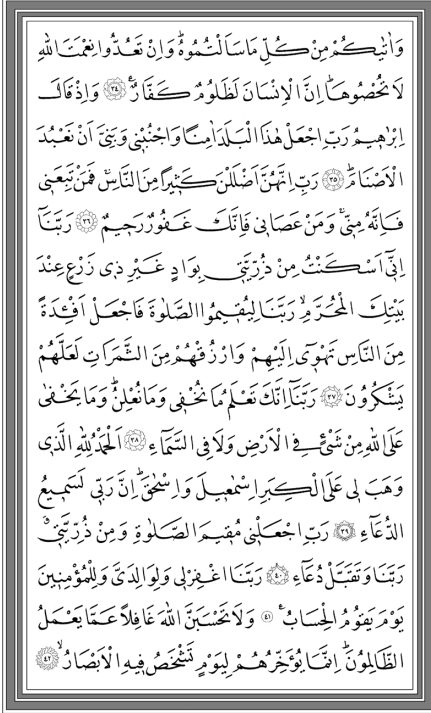 وَاٰتٰيكُمْ مِنْ كُلِّ مَا سَاَلْتُمُوهُۜ وَاِنْ تَعُدُّوا نِعْمَتَ اللّٰهِ
لَا تُحْصُوهَاۜ اِنَّ الْاِنْسَانَ لَظَلُومٌ كَفَّارٌ۟ ﴿٣٤﴾ وَاِذْ قَالَ
اِبْرٰه۪يمُ رَبِّ اجْعَلْ هٰذَا الْبَلَدَ اٰمِنًا وَاجْنُبْن۪ي وَبَنِيَّ اَنْ نَعْبُدَ
الْاَصْنَامَۜ ﴿٣٥﴾ رَبِّ اِنَّهُنَّ اَضْلَلْنَ كَث۪يرًا مِنَ النَّاسِۚ فَمَنْ تَبِعَن۪ي
فَاِنَّهُ مِنّ۪يۚ وَمَنْ عَصَان۪ي فَاِنَّكَ غَفُورٌ رَح۪يمٌ ﴿٣٦﴾ رَبَّنَٓا
اِنّ۪ٓي اَسْكَنْتُ مِنْ ذُرِّيَّت۪ي بِوَادٍ غَيْرِ ذ۪ي زَرْعٍ عِنْدَ
بَيْتِكَ الْمُحَرَّمِۙ رَبَّنَا لِيُق۪يمُوا الصَّلٰوةَ فَاجْعَلْ اَفْـِٔدَةً
مِنَ النَّاسِ تَهْو۪ٓي اِلَيْهِمْ وَارْزُقْهُمْ مِنَ الثَّمَرَاتِ لَعَلَّهُمْ
يَشْكُرُونَ ﴿٣٧﴾ رَبَّنَٓا اِنَّكَ تَعْلَمُ مَا نُخْف۪ي وَمَا نُعْلِنُۜ وَمَا يَخْفٰى
عَلَى اللّٰهِ مِنْ شَيْءٍ فِي الْاَرْضِ وَلَا فِي السَّمَٓاءِ ﴿٣٨﴾ اَلْحَمْدُ لِلّٰهِ الَّذ۪ي
وَهَبَ ل۪ي عَلَى الْكِبَرِ اِسْمٰع۪يلَ وَاِسْحٰقَۜ اِنَّ رَبّ۪ي لَسَم۪يعُ
الدُّعَٓاءِ ﴿٣٩﴾ رَبِّ اجْعَلْن۪ي مُق۪يمَ الصَّلٰوةِ وَمِنْ ذُرِّيَّت۪يۗ
رَبَّنَا وَتَقَبَّلْ دُعَٓاءِ ﴿٤٠﴾ رَبَّنَا اغْفِرْ ل۪ي وَلِوَالِدَيَّ وَلِلْمُؤْمِن۪ينَ
يَوْمَ يَقُومُ الْحِسَابُ۟ ﴿٤١﴾ وَلَا تَحْسَبَنَّ اللّٰهَ غَافِلًا عَمَّا يَعْمَلُ
الظَّالِمُونَۜ اِنَّمَا يُؤَخِّرُهُمْ لِيَوْمٍ تَشْخَصُ ف۪يهِ الْاَبْصَارُۙ ﴿٤٢﴾